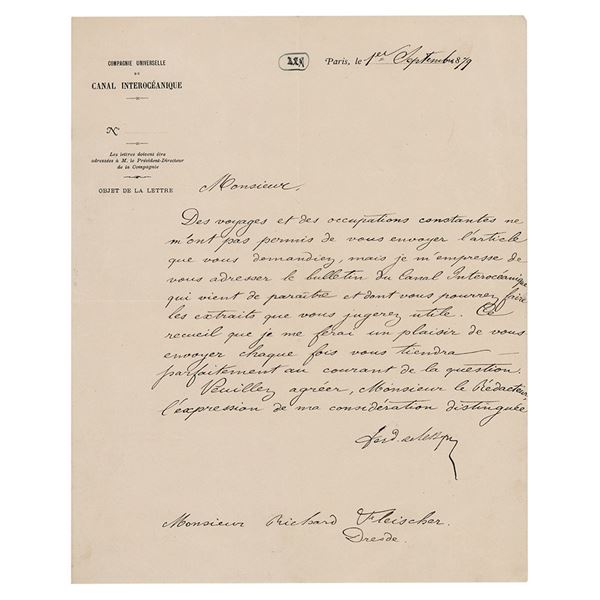 COMPAGNIE UNIVERSELLE
DU
CANAL INTEROCÉANIQUE
Paris, le 1er Septembre 1879
N°
Les lettres doivent être
adressées à M. le Président-Directeur
de la Compagnie
OBJET DE LA LETTRE
Monsieur,
Des voyages et des occupations constantes ne
m'ont pas permis de vous envoyer l'article
que vous demandiez, mais je m'empresse de
vous adresser le bulletin du Canal Interocéanique
qui vient de paraître et dont vous pourrez faire
les extraits que vous jugerez utile. Ce
recueil que je me ferai un plaisir de vous
envoyer chaque fois vous tiendra
parfaitement au courant de la question.
Veuillez agréer, Monsieur le Rédacteur,
l'expression de ma considération distinguée
Ferd. de Lesseps
Monsieur Richard Fleischer.
Dresde.